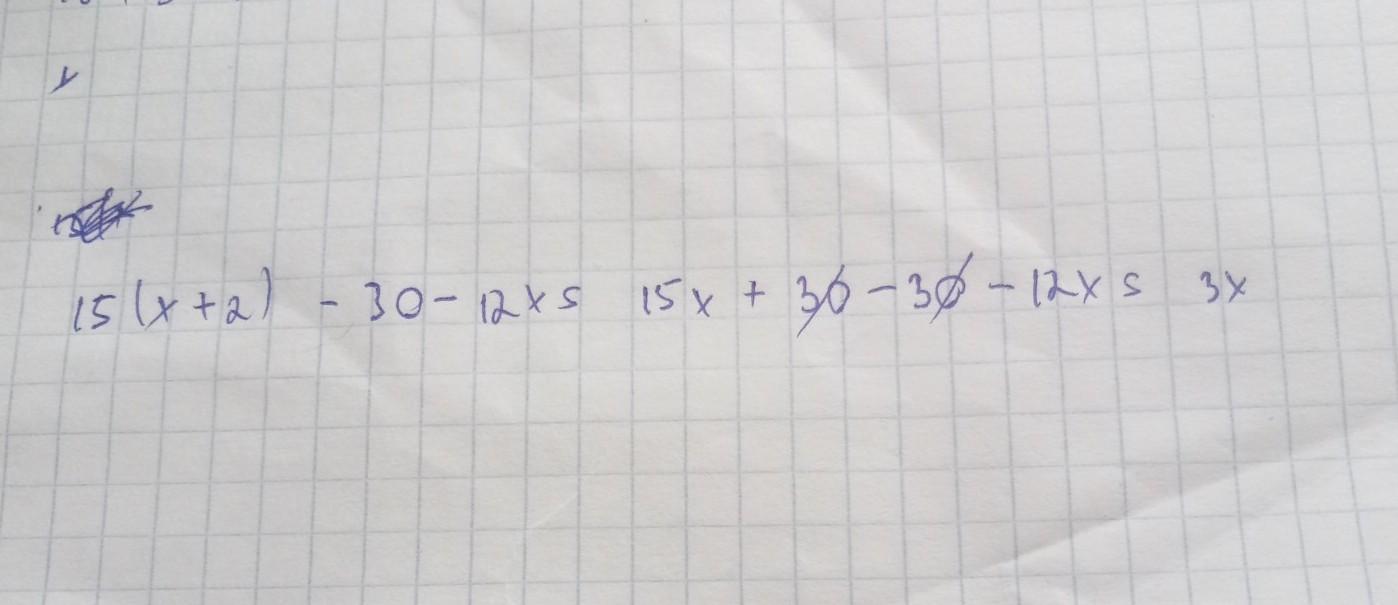 15(x+2) - 30 - 12x = 15x + 30 - 30 - 12x = 3x